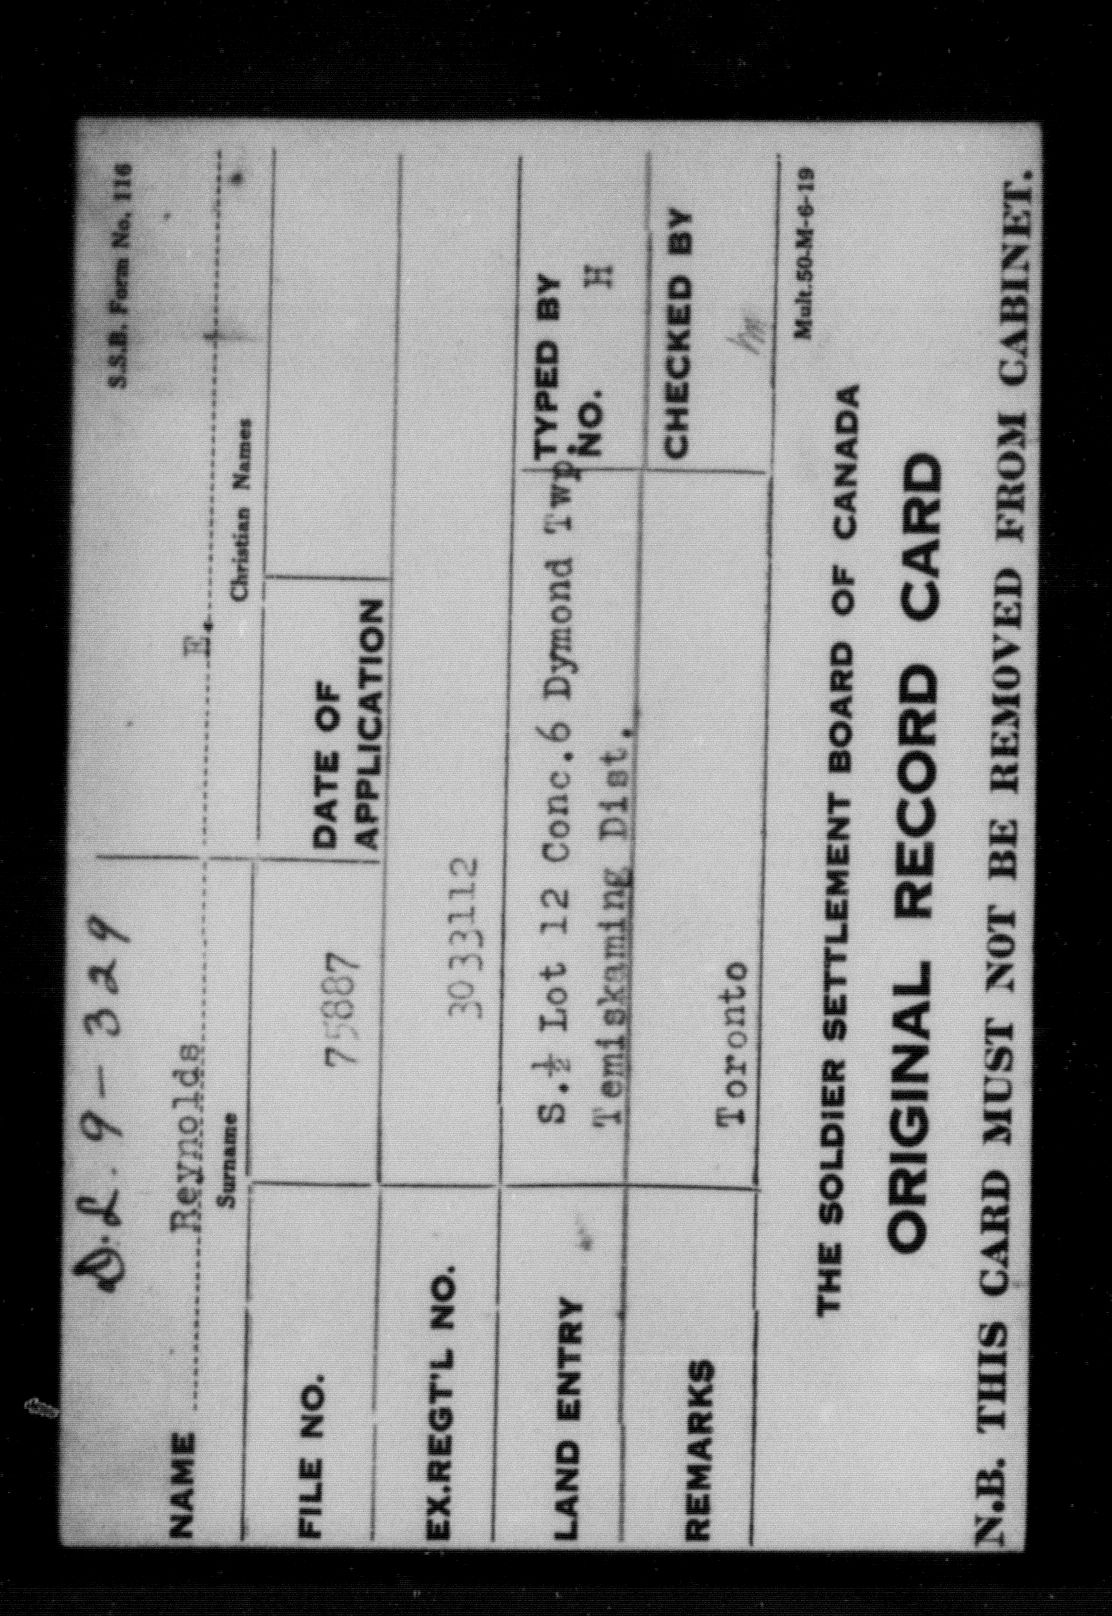 S.S.B. Form No. 116
D.L. 9-329
NAME Reynolds E.
Surname Christian Names
FILE NO. 75887 DATE OF APPLICATION
EX.REGT'L NO. 3033112
LAND ENTRY S.½ Lot 12 Conc.6 Dymond Twp. TYPED BY
Temiskaming Dist. NO. H
REMARKS Toronto CHECKED BY
hm
Mult.50-M-6-19
THE SOLDIER SETTLEMENT BOARD OF CANADA
ORIGINAL RECORD CARD
N.B. THIS CARD MUST NOT BE REMOVED FROM CABINET.